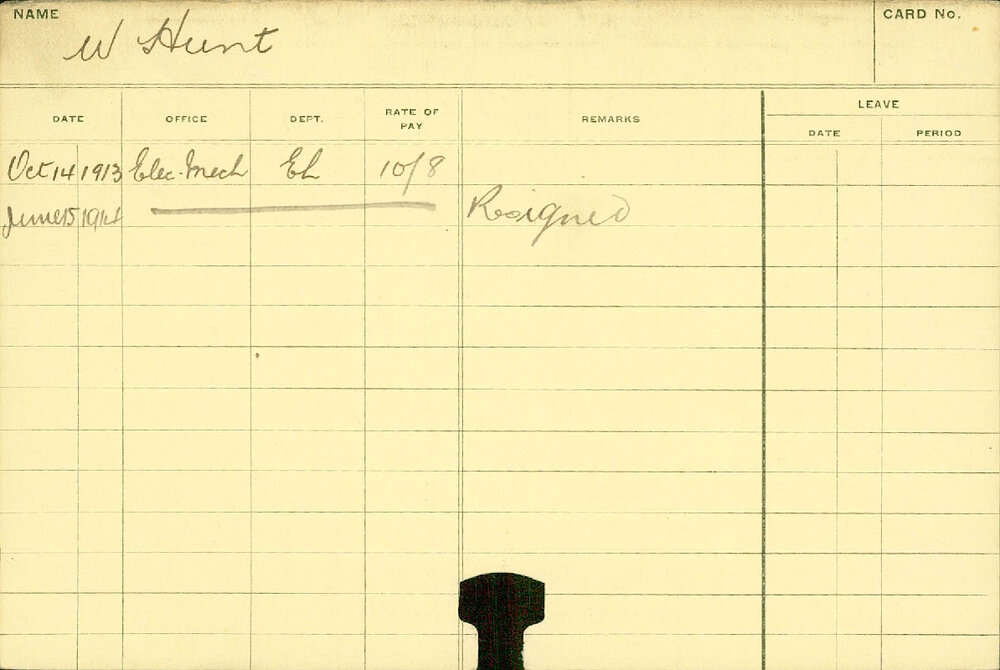 NAME
W Hunt
CARD No.
DATE OFFICE DEPT. RATE OF PAY REMARKS LEAVE
DATE PERIOD
Oct 14 1913 Elec. Mech EL 10/8
June 15 1914 Resigned